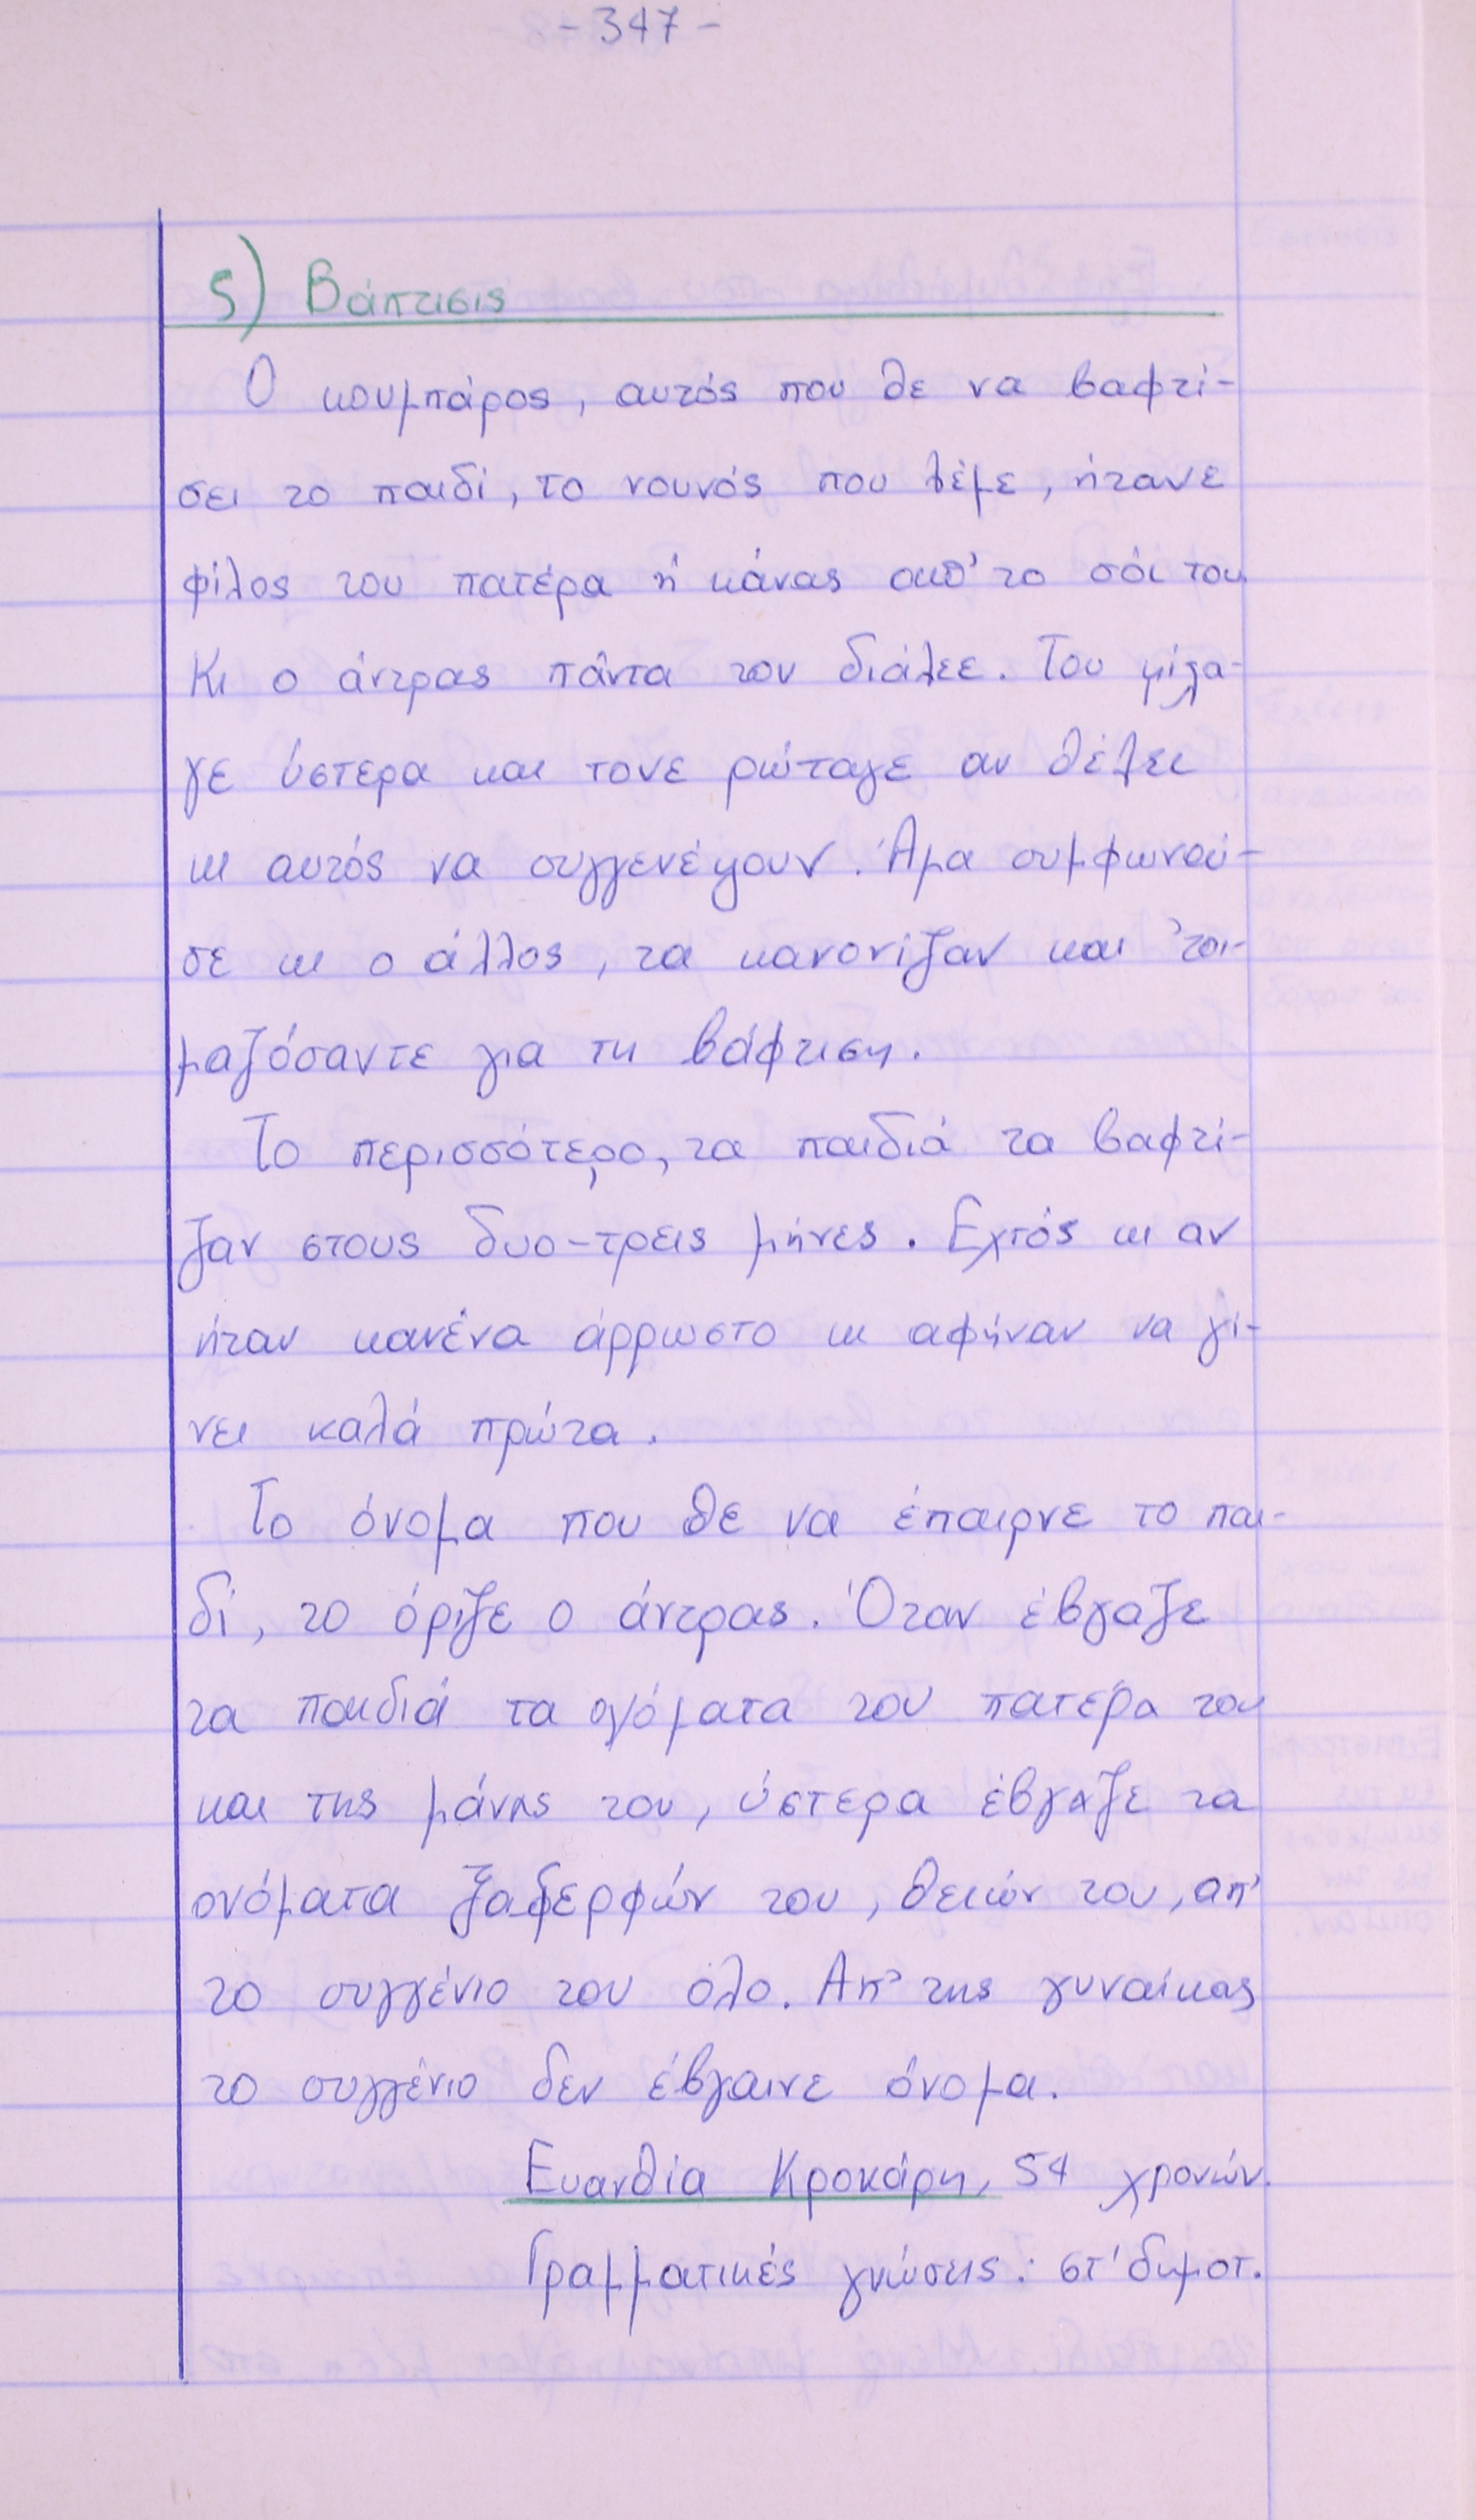 - 347 -
5) Βάπτισις
Ο κουμπάρος, αυτός που θε να βαφτί-
σει το παιδί, το νουνός που λέμε, ήτανε
φίλος του πατέρα ή κάνας απ' το σόι του
Κι ο άντρας πάντα τον διάλεε. Του μίλα-
γε ύστερα και τονε ρώταγε αν θέλει
κι αυτός να συγγενέψουν. Άμα συμφωνού-
σε κι ο άλλος, τα κανονίζαν και 'τοι-
μαζόσαντε για τη βάφτιση.
Το περισσότερο, τα παιδιά τα βαφτί-
ζαν στους δυο-τρεις μήνες. Εχτός κι αν
ήταν κανένα άρρωστο κι αφήναν να γί-
νει καλά πρώτα.
Το όνομα που θε να έπαιρνε το παι-
δί, το όριζε ο άντρας. Όταν έβγαζε
τα παιδιά τα ονόματα του πατέρα του
και της μάνης του, ύστερα έβγαζε τα
ονόματα ξαδερφών του, θειών του, απ'
το συγγένιο του όλο. Απ' της γυναίκας
το συγγένιο δεν έβγαινε όνομα.
Ευανθία Κροκάρη, 54 χρονών.
Γραμματικές γνώσεις: στ' δημοτ.